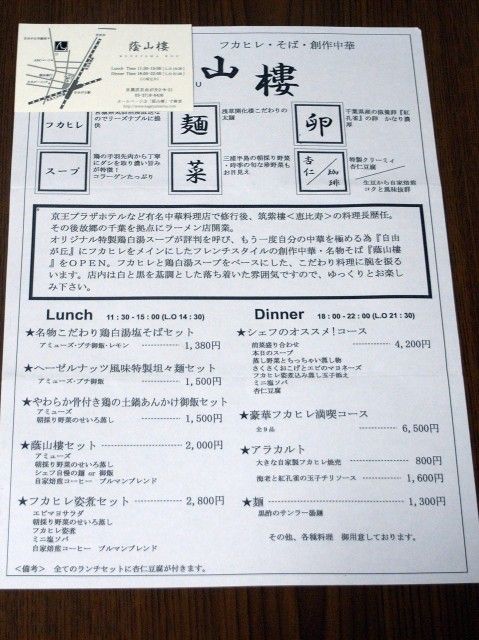 蔭山樓
フカヒレ・そば・創作中華
山樓
フカヒレ
なのでリーズナブルに提供
麺
浅草開化楼こだわりの太麺
卵
千葉県産の放養卵『紅孔雀』の卵 かなり濃厚
スープ
鶏の手羽先肉から丁寧にダシを取り濃い旨みが特徴!
コラーゲンたっぷり
菜
三浦半島の朝採り野菜・時季の旬な珍野菜もお目見え
杏仁/珈琲
特製クリーミィ杏仁豆腐
生豆から自家焙煎
コクと風味抜群
京王プラザホテルなど有名中華料理店で修行後、筑紫樓<恵比寿>の料理長歴任。
その後故郷の千葉を拠点にラーメン店開業。
オリジナル特製鶏白湯スープが評判を呼び、もう一度自分の中華を極める為『自由
が丘』にフカヒレをメインにしたフレンチスタイルの創作中華・名物そば『蔭山樓』
をOPEN。フカヒレと鶏白湯スープをベースにした、こだわり料理に腕を振る
います。店内は白と黒を基調とした落ち着いた雰囲気ですので、ゆっくりとお楽し
み下さい。
Lunch 11:30-15:00 (L.O 14:30)
★名物こだわり鶏白湯塩そばセット
アミューズ・プチ御飯・レモン 1,380円
★ヘーゼルナッツ風味特製坦々麺セット
アミューズ・プチ御飯 1,500円
★やわらか骨付き鶏の土鍋あんかけ御飯セット
アミューズ
朝採り野菜のせいろ蒸し 1,500円
★蔭山樓セット 2,000円
アミューズ
朝採り野菜のせいろ蒸し
シェフ自慢の麺 or 御飯
自家焙煎コーヒー ブルマンブレンド
★フカヒレ姿煮セット 2,800円
エビマヨサラダ
朝採り野菜のせいろ蒸し
フカヒレ姿煮
ミニ塩ソバ
自家焙煎コーヒー ブルマンブレンド
Dinner 18:00-22:00 (L.O 21:30)
★シェフのオススメ!コース 4,200円
前菜盛り合わせ
本日のスープ
蒸し野菜とちっちゃい蒸し物
さくさくおこげとエビのマヨネーズ
フカヒレ姿煮込み蒸し玉子添え
ミニ塩ソバ
杏仁豆腐
★豪華フカヒレ満喫コース
全9品 6,500円
★アラカルト
大きな自家製フカヒレ焼売 800円
海老と紅孔雀の玉子チリソース 1,600円
★麺 1,300円
黒酢のサンラー湯麺
その他、各種料理 御用意しております。
<備考> 全てのランチセットに杏仁豆腐が付きます。